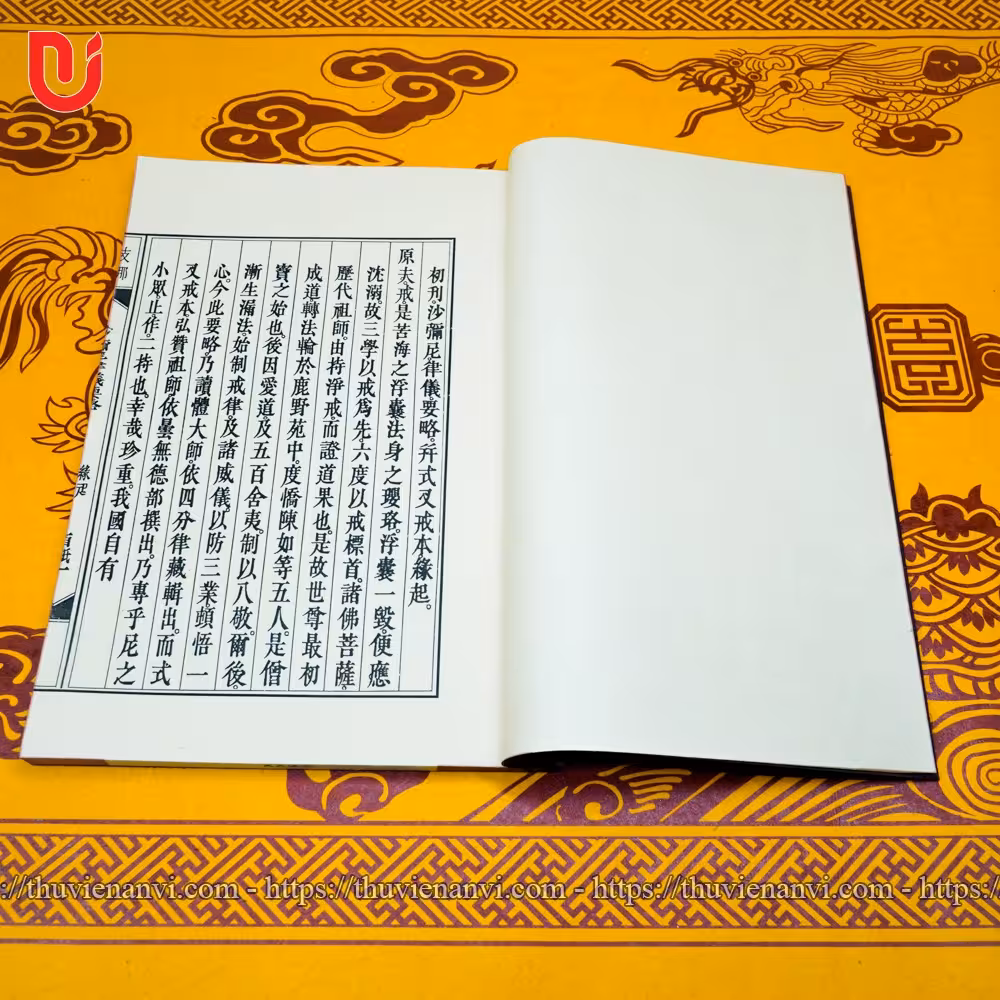 初刊。沙彌尼律儀。要略。并式叉戒本。緣起。
原夫。戒是苦海之浮囊。法身之瓔珞。浮囊一毀。便應
沈溺。故三學以戒爲先。六度以戒標首。諸佛菩薩。
歷代祖師。由持淨戒。而證道果也。是故世尊最初
成道。轉法輪於鹿野苑中。度憍陳如等五人。是僧
寶之始也。後因愛道。及五百舍夷。制以八敬。爾後。
漸生漏法。始制戒律。及諸威儀。以防三業。頓悟一
心。今此要略。乃讀體大師。依四分律藏輯出。而式
叉戒本。弘贊祖師。依曇無德部撰出。乃專乎尼之
小眾。止作。二持也。幸哉珍重。我國自有
https://thuvienanvi.com - https://thuvienanvi.com - https://thuvienanvi.com - https://